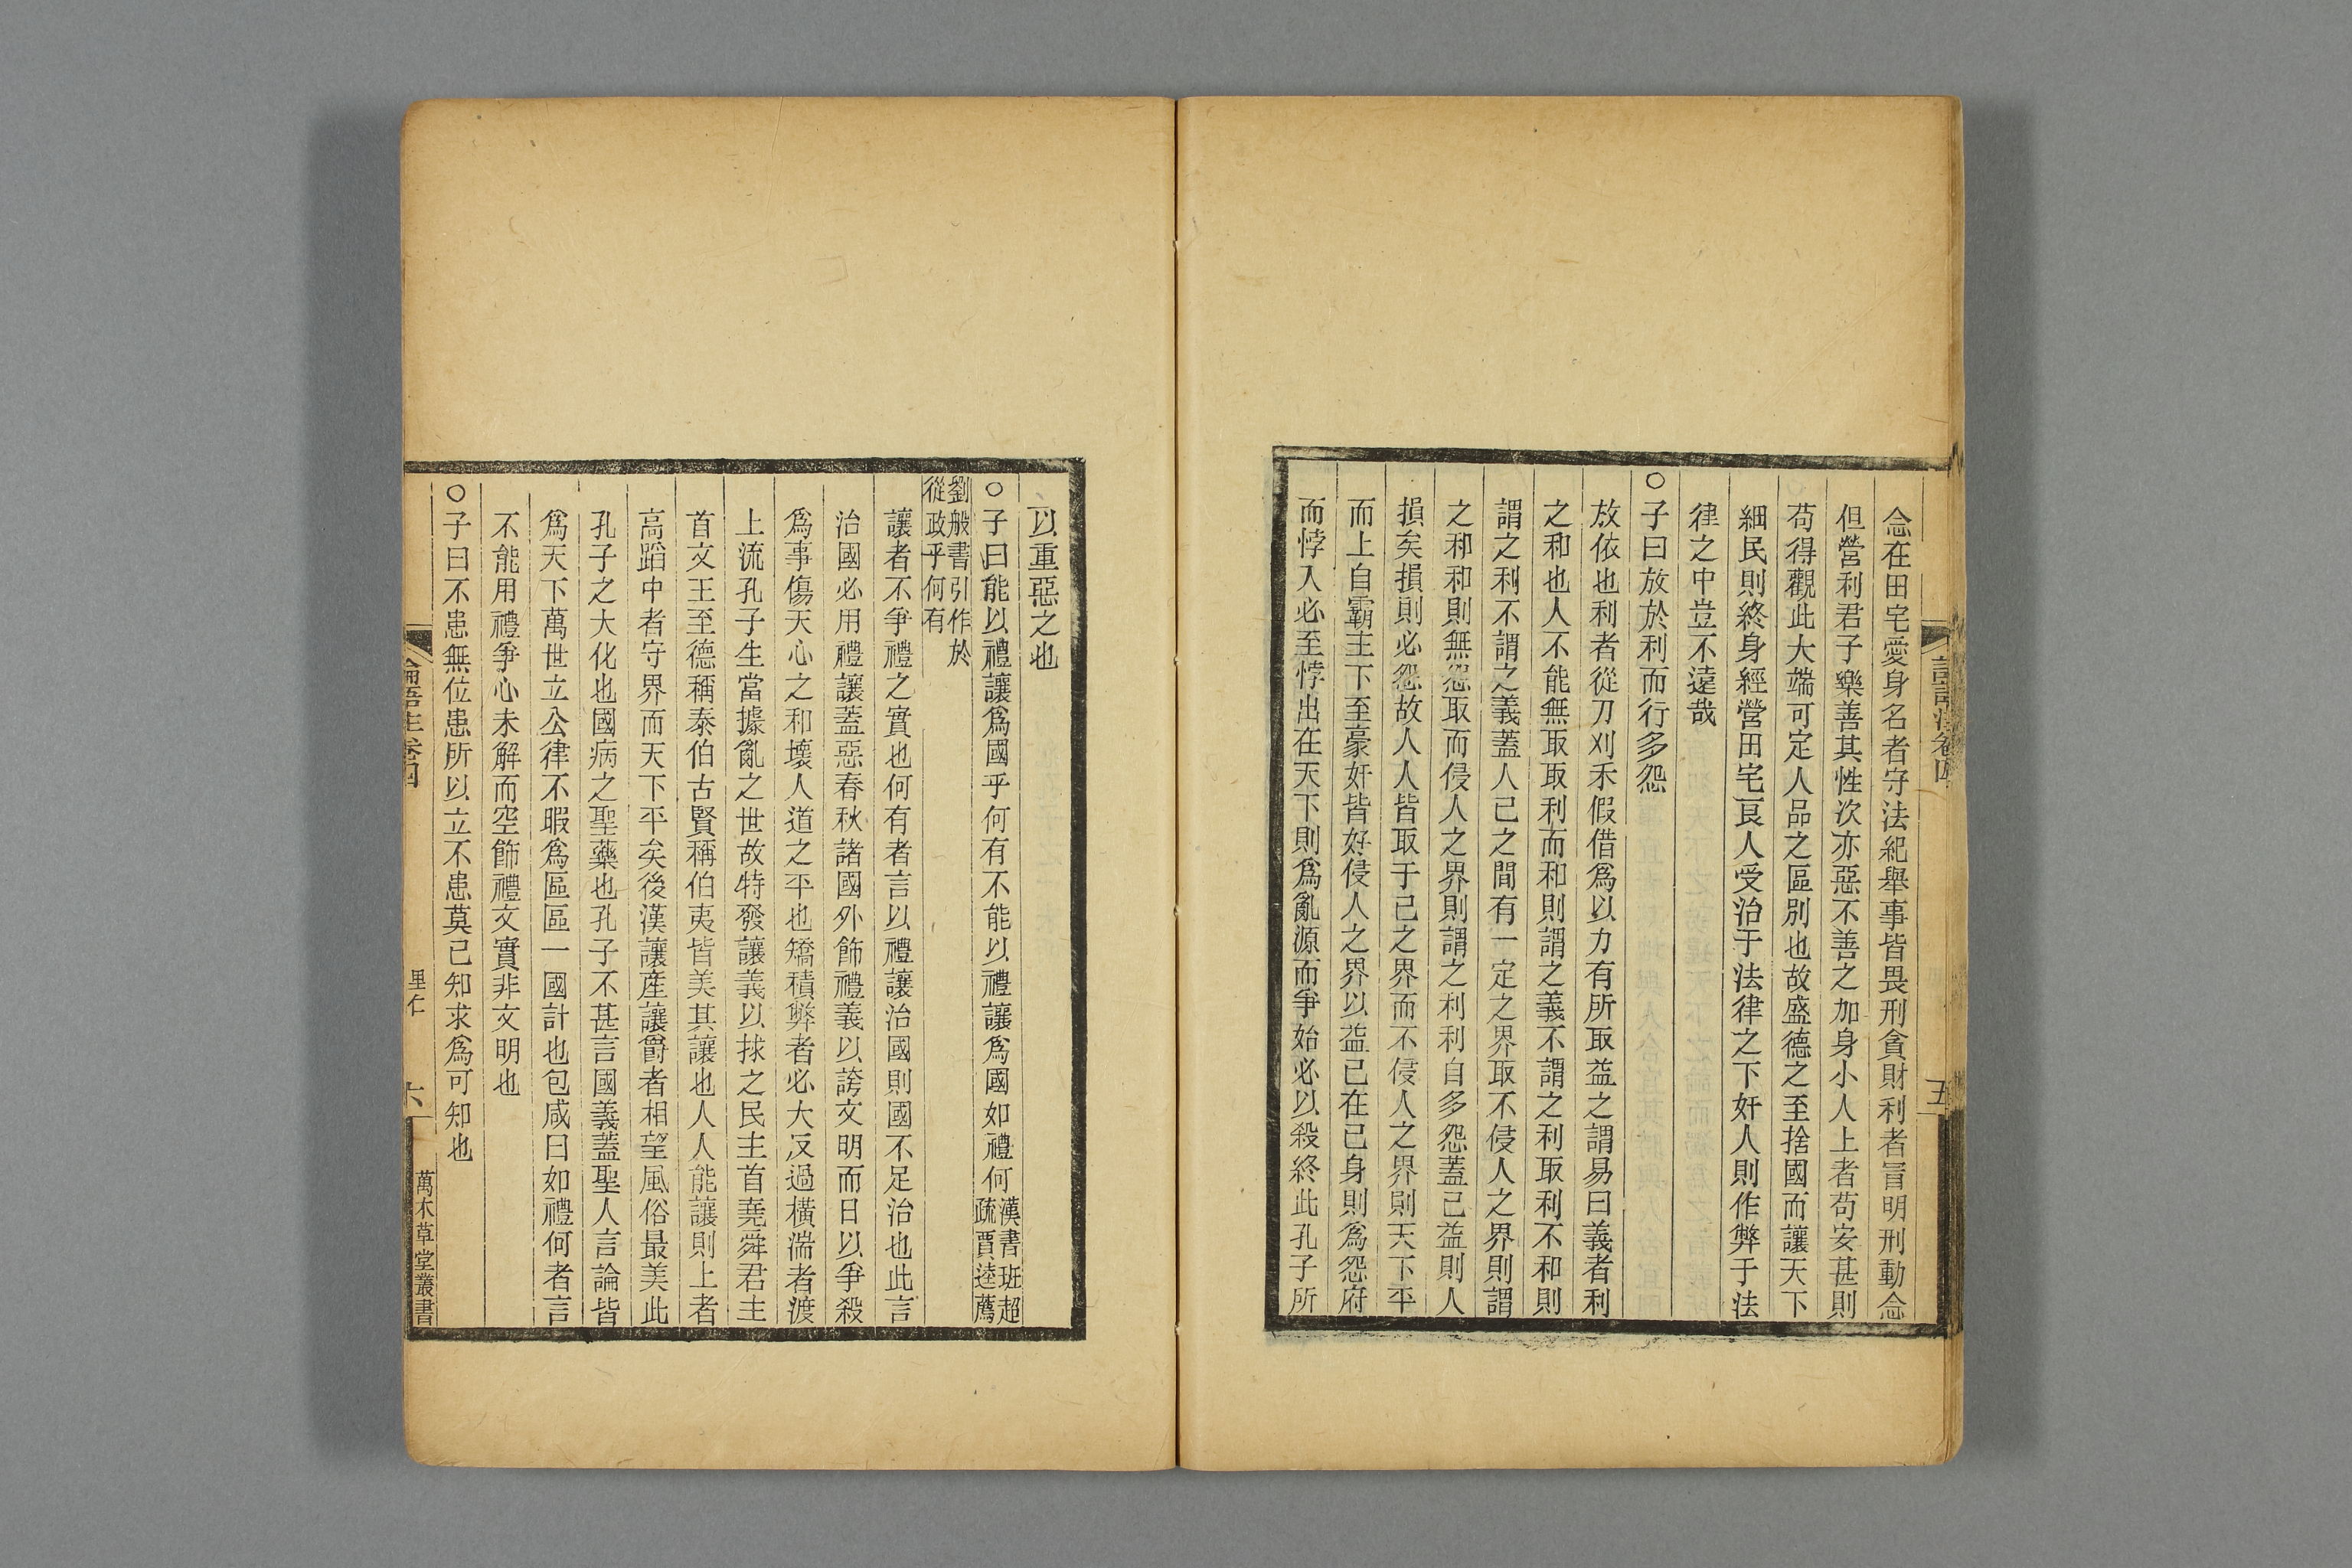 念在田宅愛身名者守法紀舉事皆畏刑貪財利者冒明刑動念
但營利君子樂善其性次亦惡不善之加身小人上者苟安甚則
苟得觀此大端可定人品之區別也故盛德之至捨國而讓天下
細民則終身經營田宅良人受治于法律之下奸人則作弊于法
律之中豈不遠哉
○子曰放於利而行多怨
放依也利者從刀刈禾假借爲以力有所取益之謂易曰義者利
之和也人不能無取取利而和則謂之義不謂之利取利不和則
謂之利不謂之義蓋人己之間有一定之界取不侵人之界則謂
之和和則無怨取而侵人之界則謂之利利自多怨蓋己益則人
損矣損則必怨故人人皆取于己之界而不侵人之界則天下平
而上自霸主下至豪奸皆好侵人之界以益己在己身則爲怨府
而悖入必至悖出在天下則爲亂源而爭始必以殺終此孔子所
論語注卷四
五
以重惡之也
○子曰能以禮讓爲國乎何有不能以禮讓爲國如禮何
漢書班超
疏賈逵薦
劉般書引作於
從政乎何有
讓者不爭禮之實也何有者言以禮讓治國則國不足治也此言
治國必用禮讓蓋惡春秋諸國外飾禮義以誇文明而日以爭殺
爲事傷天心之和壞人道之平也矯積弊者必大反過橫湍者渡
上流孔子生當據亂之世故特發讓義以捄之民主首堯舜君主
首文王至德稱泰伯古賢稱伯夷皆美其讓也人人能讓則上者
高蹈中者守界而天下平矣後漢讓產讓爵者相望風俗最美此
孔子之大化也國病之聖藥也孔子不甚言國義蓋聖人言論皆
爲天下萬世立公律不暇爲區區一國計也包咸曰如禮何者言
不能用禮爭心未解而空飾禮文實非文明也
○子曰不患無位患所以立不患莫己知求爲可知也
論語注卷四
里仁
六
萬木草堂叢書